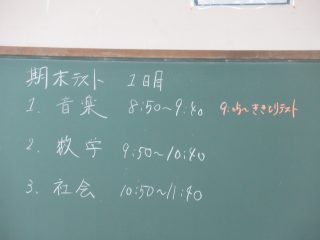 期末テスト 1日目
1. 音楽 8:50〜9:40 9:05〜ききとりテスト
2. 数学 9:50〜10:40
3. 社会 10:50〜11:40